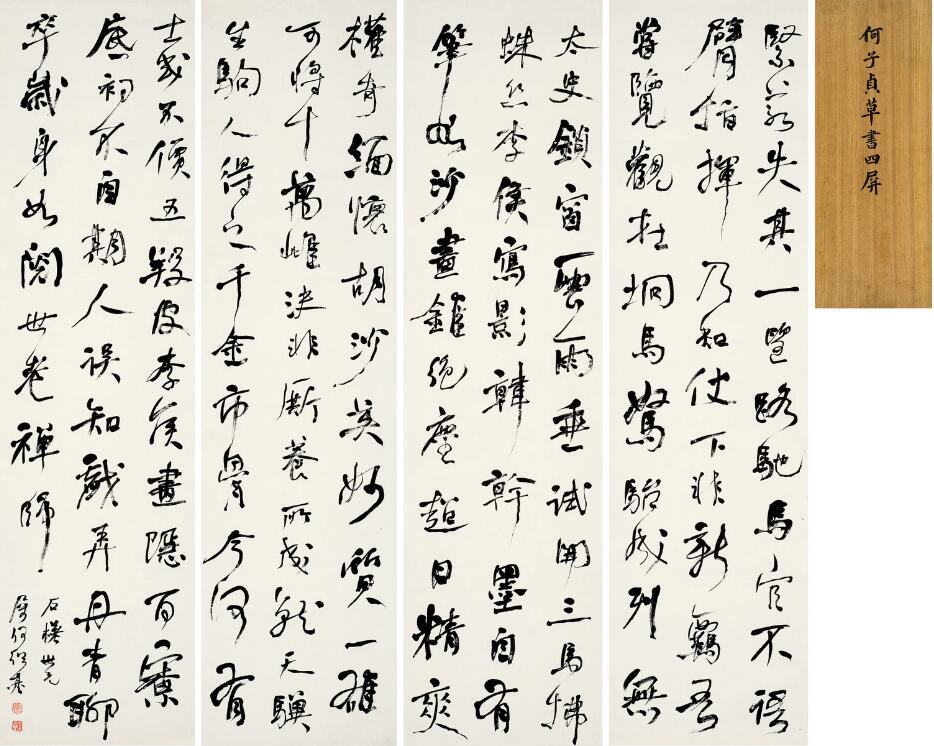 何子貞草書四屏
緊若失其一望路馳馬官不語
臂指揮乃知仗下非新羈吾
嘗覽觀在坰馬駑駘成列無
太史鎖窗雲雨垂試開三馬拂
蛛絲李侯寫影韓幹墨自有
筆如沙畫錐絕塵超日精爽
權奇緬懷胡沙英妙質一雄
可將十萬雌決非廝養所成就天驥
生駒人得之千金市骨今何有
士或不價五羖皮李侯畫隱百寮
底初不自期人誤知戲弄丹青聊
卒歲身如閱世老禪師
石樵世兄
屬何紹基